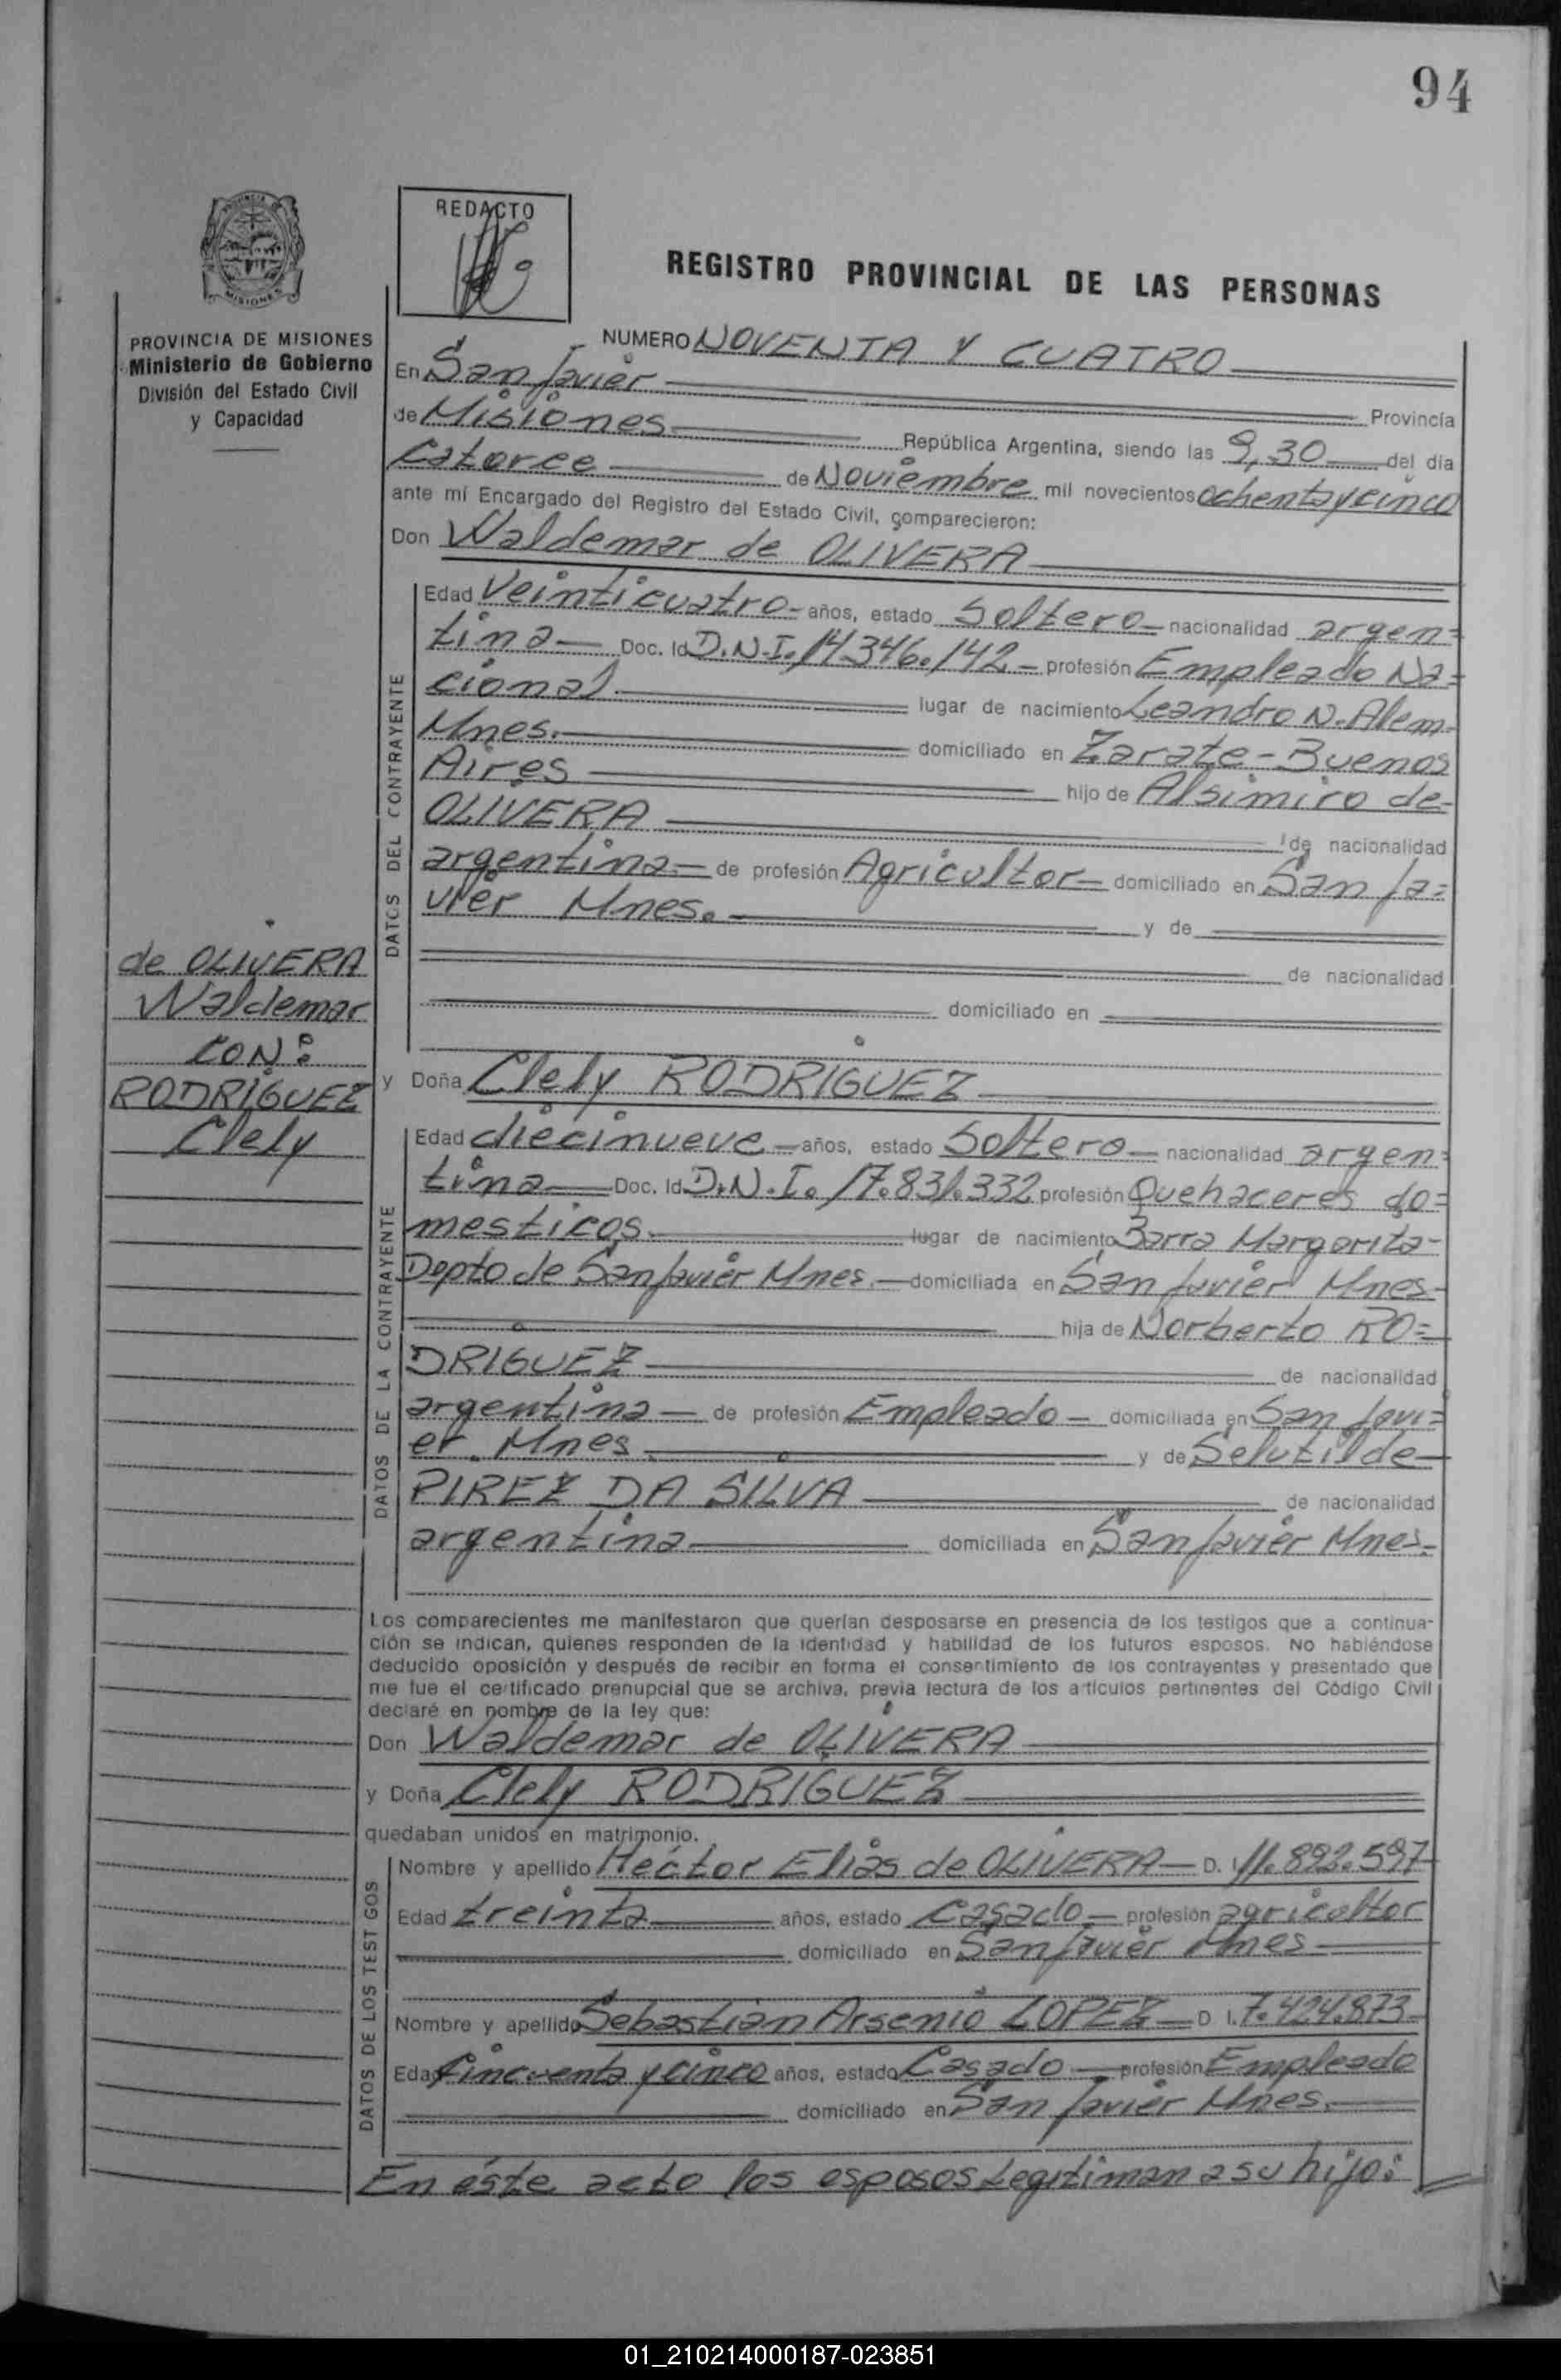 94
REDACTO
REGISTRO PROVINCIAL DE LAS PERSONAS
PROVINCIA DE MISIONES
Ministerio de Gobierno
División del Estado Civil
y Capacidad
NUMERO NOVENTA Y CUATRO
En San Javier Provincia
de Misiones República Argentina, siendo las 9,30 del día
catorce de Noviembre mil novecientos ochenta y cinco
ante mí Encargado del Registro del Estado Civil, comparecieron:
Don Waldemar de OLIVERA
DATOS DEL CONTRAYENTE
Edad Veinticuatro años, estado Soltero nacionalidad argen=
tina Doc. Id D.N.I. 14.346.142 profesión Empleado Na=
cional lugar de nacimiento Leandro N. Alem
Mnes. domiciliado en Zarate - Buenos
Aires hijo de Alsimiro de
OLIVERA de nacionalidad
argentina de profesión Agricultor domiciliado en San Ja=
vier Mnes. y de
de nacionalidad
domiciliado en
de OLIVERA
Waldemar
CON:
RODRIGUEZ
Clely
y Doña Clely RODRIGUEZ
DATOS DE LA CONTRAYENTE
Edad diecinueve años, estado Soltero nacionalidad argen=
tina Doc. Id D.N.I. 17.831.332 profesión Quehaceres do=
mesticos. lugar de nacimiento Barra Margarita-
Depto de San Javier Mnes. domiciliada en San Javier Mnes-
hija de Norberto RO=
DRIGUEZ de nacionalidad
argentina de profesión Empleado domiciliada en San Javi=
er Mnes y de Selutilde
PIREZ DA SILVA de nacionalidad
argentina domiciliada en San Javier Mnes.
Los comparecientes me manifestaron que querían desposarse en presencia de los testigos que a continua-
ción se indican, quienes responden de la identidad y habilidad de los futuros esposos. No habiéndose
deducido oposición y después de recibir en forma el consentimiento de los contrayentes y presentado que
me fue el certificado prenupcial que se archiva, previa lectura de los artículos pertinentes del Código Civil
declaré en nombre de la ley que:
Don Waldemar de OLIVERA
y Doña Clely RODRIGUEZ
quedaban unidos en matrimonio.
DATOS DE LOS TESTIGOS
Nombre y apellido Héctor Elias de OLIVERA D. I. 11.892.597
Edad treinta años, estado Casado profesión agricultor
domiciliado en San Javier Mnes
Nombre y apellido Sebastián Arsenio LOPEZ D I. 7.424.873
Edad Cincuenta y cinco años, estado Casado profesión Empleado
domiciliado en San Javier Mnes.
En éste acto los esposos Legitiman a su hijo:
01_210214000187-023851